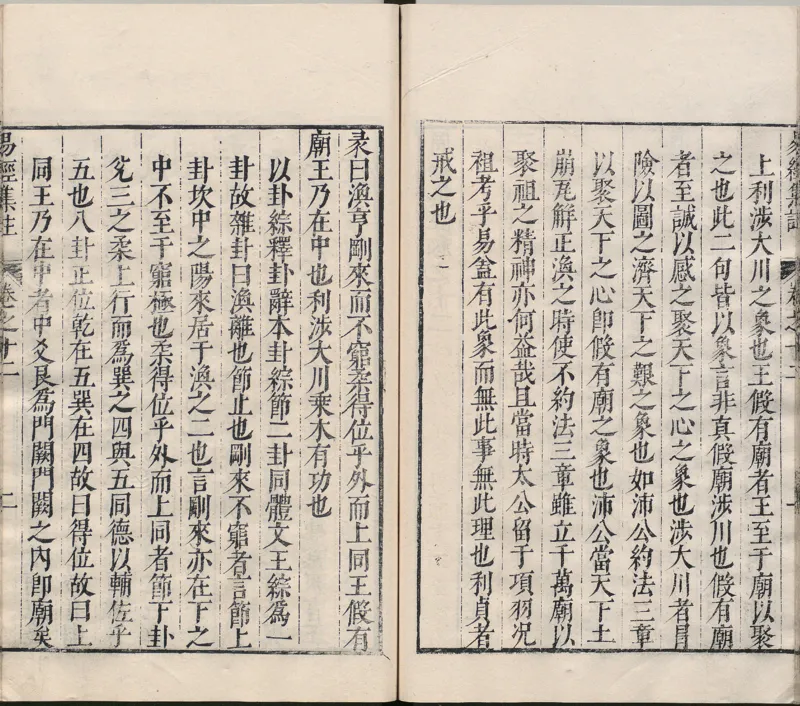 上利涉大川之象也王假有廟者王至于廟以聚
之也此二句皆以象言非真假廟涉川也假有廟
者至誠以感之聚天下之心之象也涉大川者冒
險以圖之濟天下之艱之象也如沛公約法三章
以聚天下之心即假有廟之象也沛公當天下土
崩瓦解正渙之時使不約法三章雖立千萬廟以
聚祖之精神亦何益哉且當時太公留于項羽况
祖考乎易盖有此象而無此事無此理也利貞者
戒之也
彖曰渙亨剛來而不窮柔得位乎外而上同王假有
廟王乃在中也利涉大川乘木有功也
以卦綜釋卦辭本卦綜節二卦同體文王綜為一
卦故雜卦曰渙離也節止也剛來不窮者言節上
卦坎中之陽來居于渙之二也言剛來亦在下之
中不至于窮極也柔得位乎外而上同者節下卦
兌三之柔上行而為巽之四與五同德以輔佐乎
五也八卦正位乾在五巽在四故曰得位故曰上
同王乃在中者中爻艮為門闕門闕之內即廟矣
易經集註
卷之十二
二